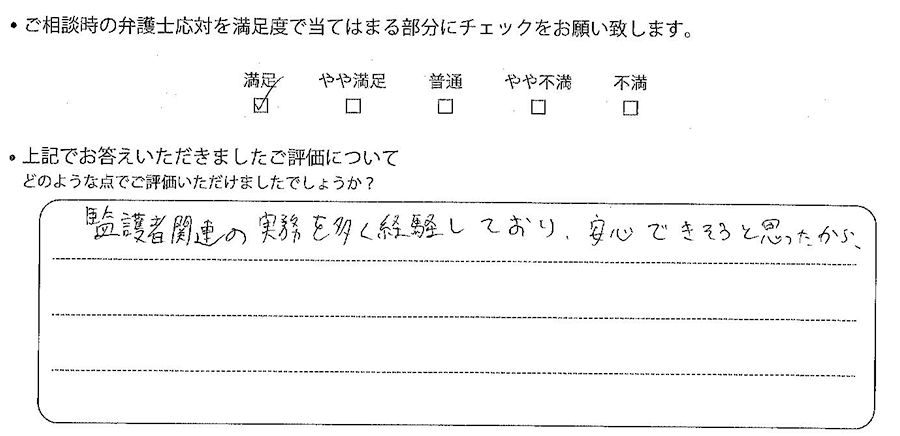 • ご相談時の弁護士応対を満足度で当てはまる部分にチェックをお願い致します。
満足 やや満足 普通 やや不満 不満
☑ □ □ □ □
• 上記でお答えいただきましたご評価について
どのような点でご評価いただけましたでしょうか？
監護者関連の実務を多く経験しており、安心できそうと思ったから、